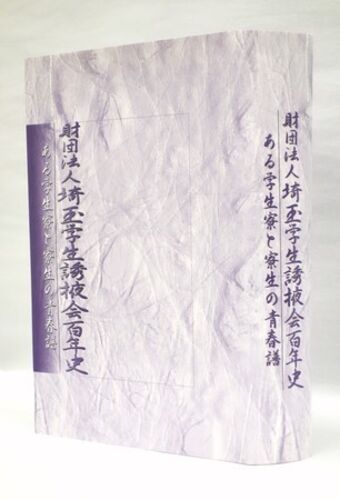 財団法人埼玉学生誘掖会百年史
ある学生寮と寮生の青春譜
財団法人埼玉学生誘掖会百年史
ある学生寮と寮生の青春譜